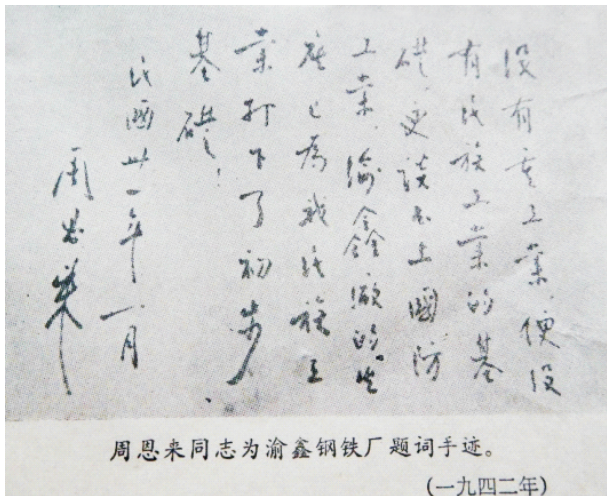 沒有重工業，便沒
有民族工業的基
礎，更談不上國防
工業，渝鑫廠的生
產已為我民族工
業打下了初步
基礎！
民國卅一年一月
周恩来
周恩来同志为渝鑫钢铁厂题词手迹。
(一九四二年)